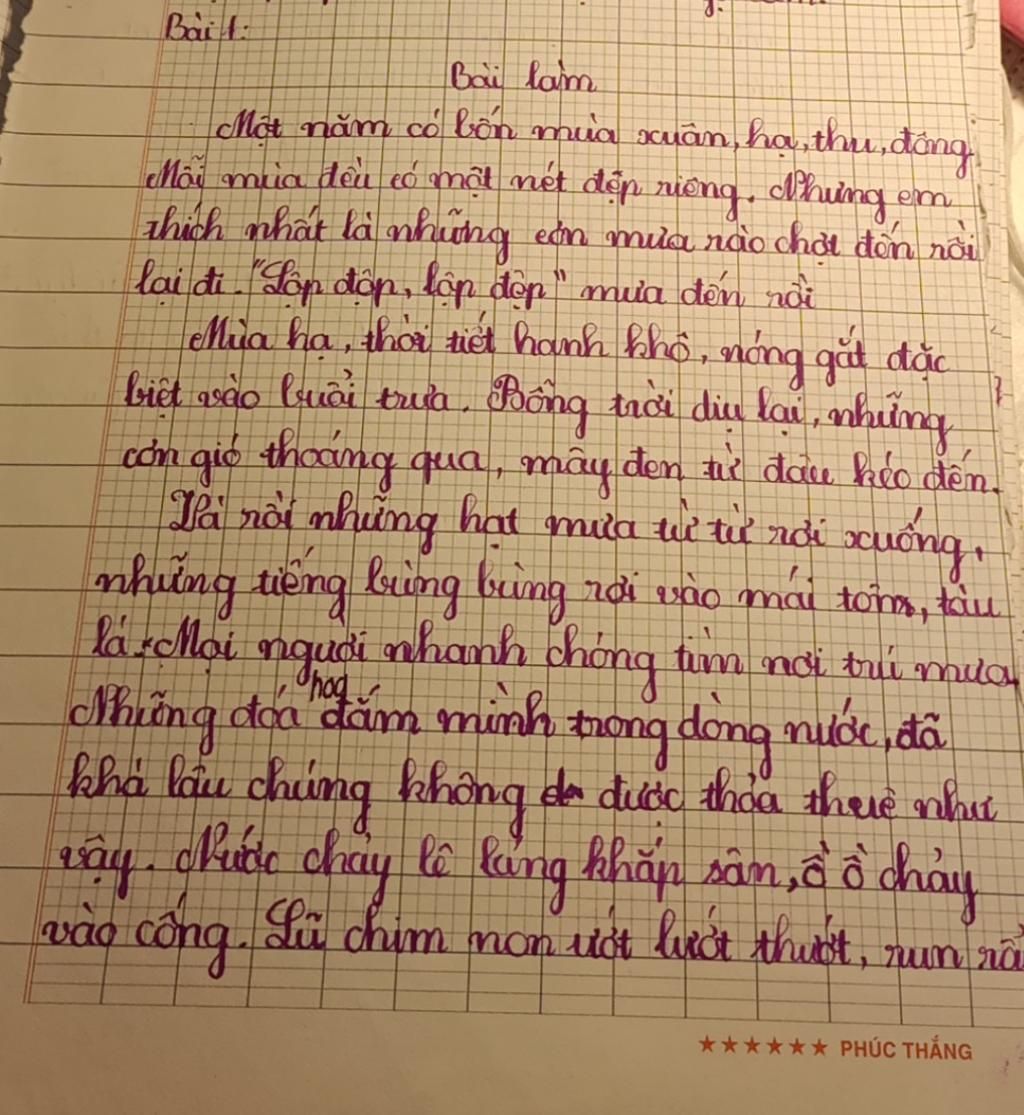 Bài 1:
Bài làm
Một năm có bốn mùa xuân, hạ, thu, đông.
Mỗi mùa đều có một nét đẹp riêng. Nhưng em
thích nhất là những cơn mưa rào chợt đến rồi
lại đi. "Lộp độp, lộp độp" mưa đến rồi
Mùa hạ, thời tiết hanh khô, nóng gắt đặc
biệt vào buổi trưa. Bỗng trời dịu lại, những
cơn gió thoáng qua, mây đen từ đâu kéo đến.
Và rồi những hạt mưa từ từ rơi xuống,
những tiếng bùng bùng rơi vào mái tôn, tàu
lá. Mọi người nhanh chóng tìm nơi trú mưa
Những đoá hoa đắm mình trong dòng nước, đã
khá lâu chúng không được thỏa thuê như
vậy. Nước chảy lê láng khắp sân, ồ ồ chảy
vào cống. Lũ chim non ướt lướt thướt, run rẩ
★★★★★★ PHÚC THẮNG